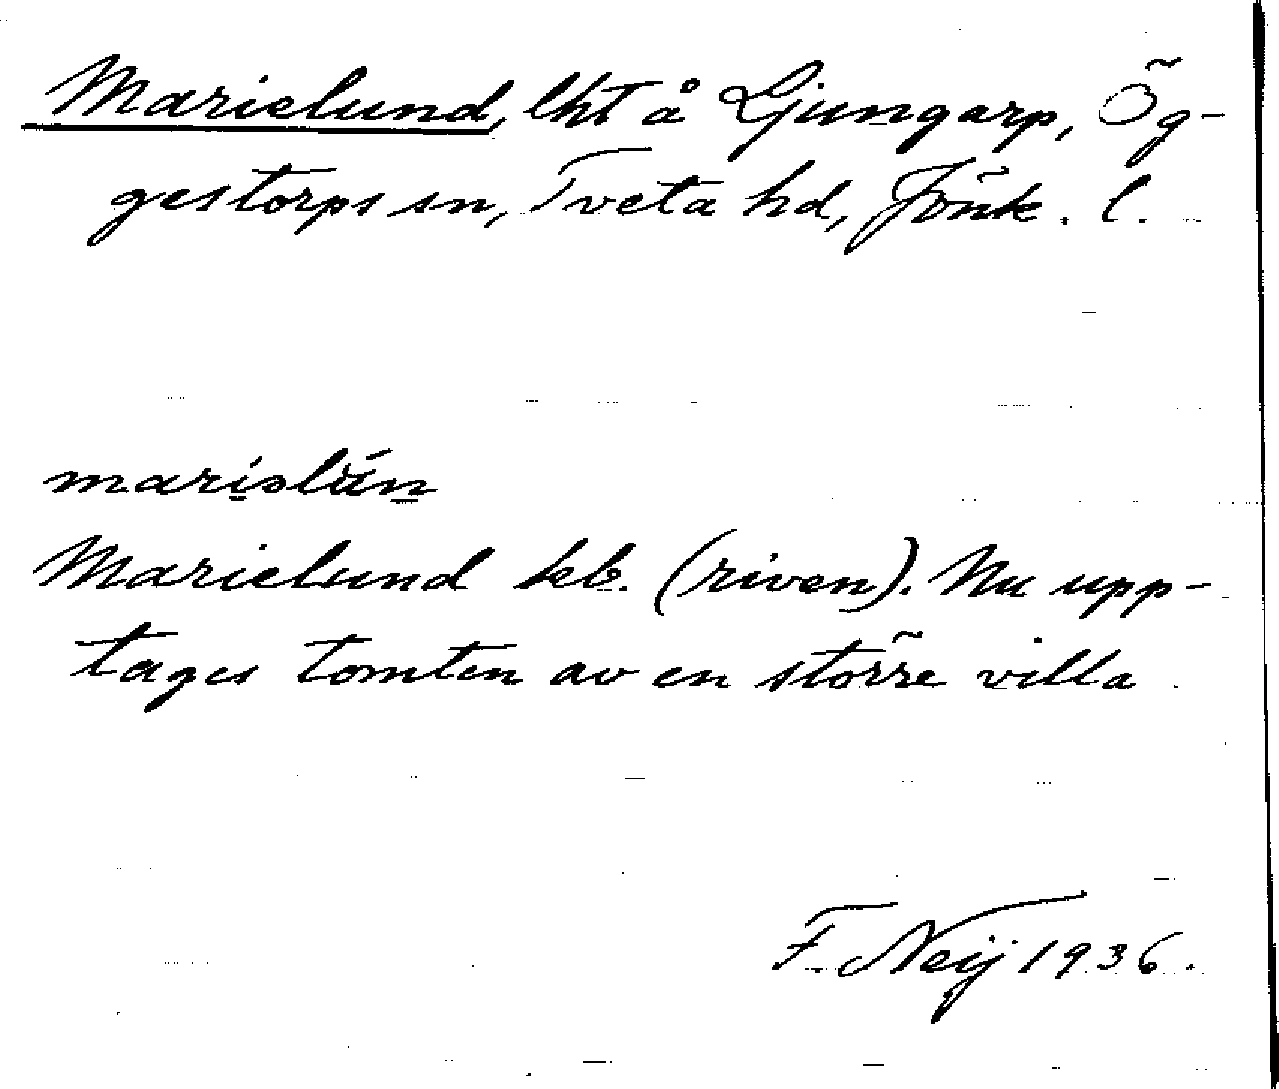 Marielund, lht å Ljungarp, Ög-
gestorps sn, Tveta hd, Jönk. l.
marislún
Marielund kb. (riven). Nu upp-
tages tomten av en större villa.
F. Neij 1936.